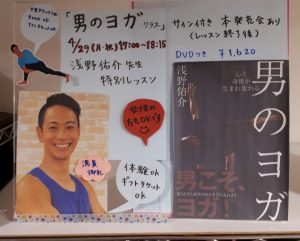 「男のヨガ クラス」
4/29(月・祝)17:00~18:15
浅野佑介 先生
特別レッスン
女性の
方もOK!!
満員
御礼
体験ok
ギフトチケット
ok
サイン付き 本 発売会あり
(レッスン終了後)
DVDつき ¥1,620
心と
身体が
生まれ変わる
男のヨガ
浅野佑介
男こそ、
ヨガ!